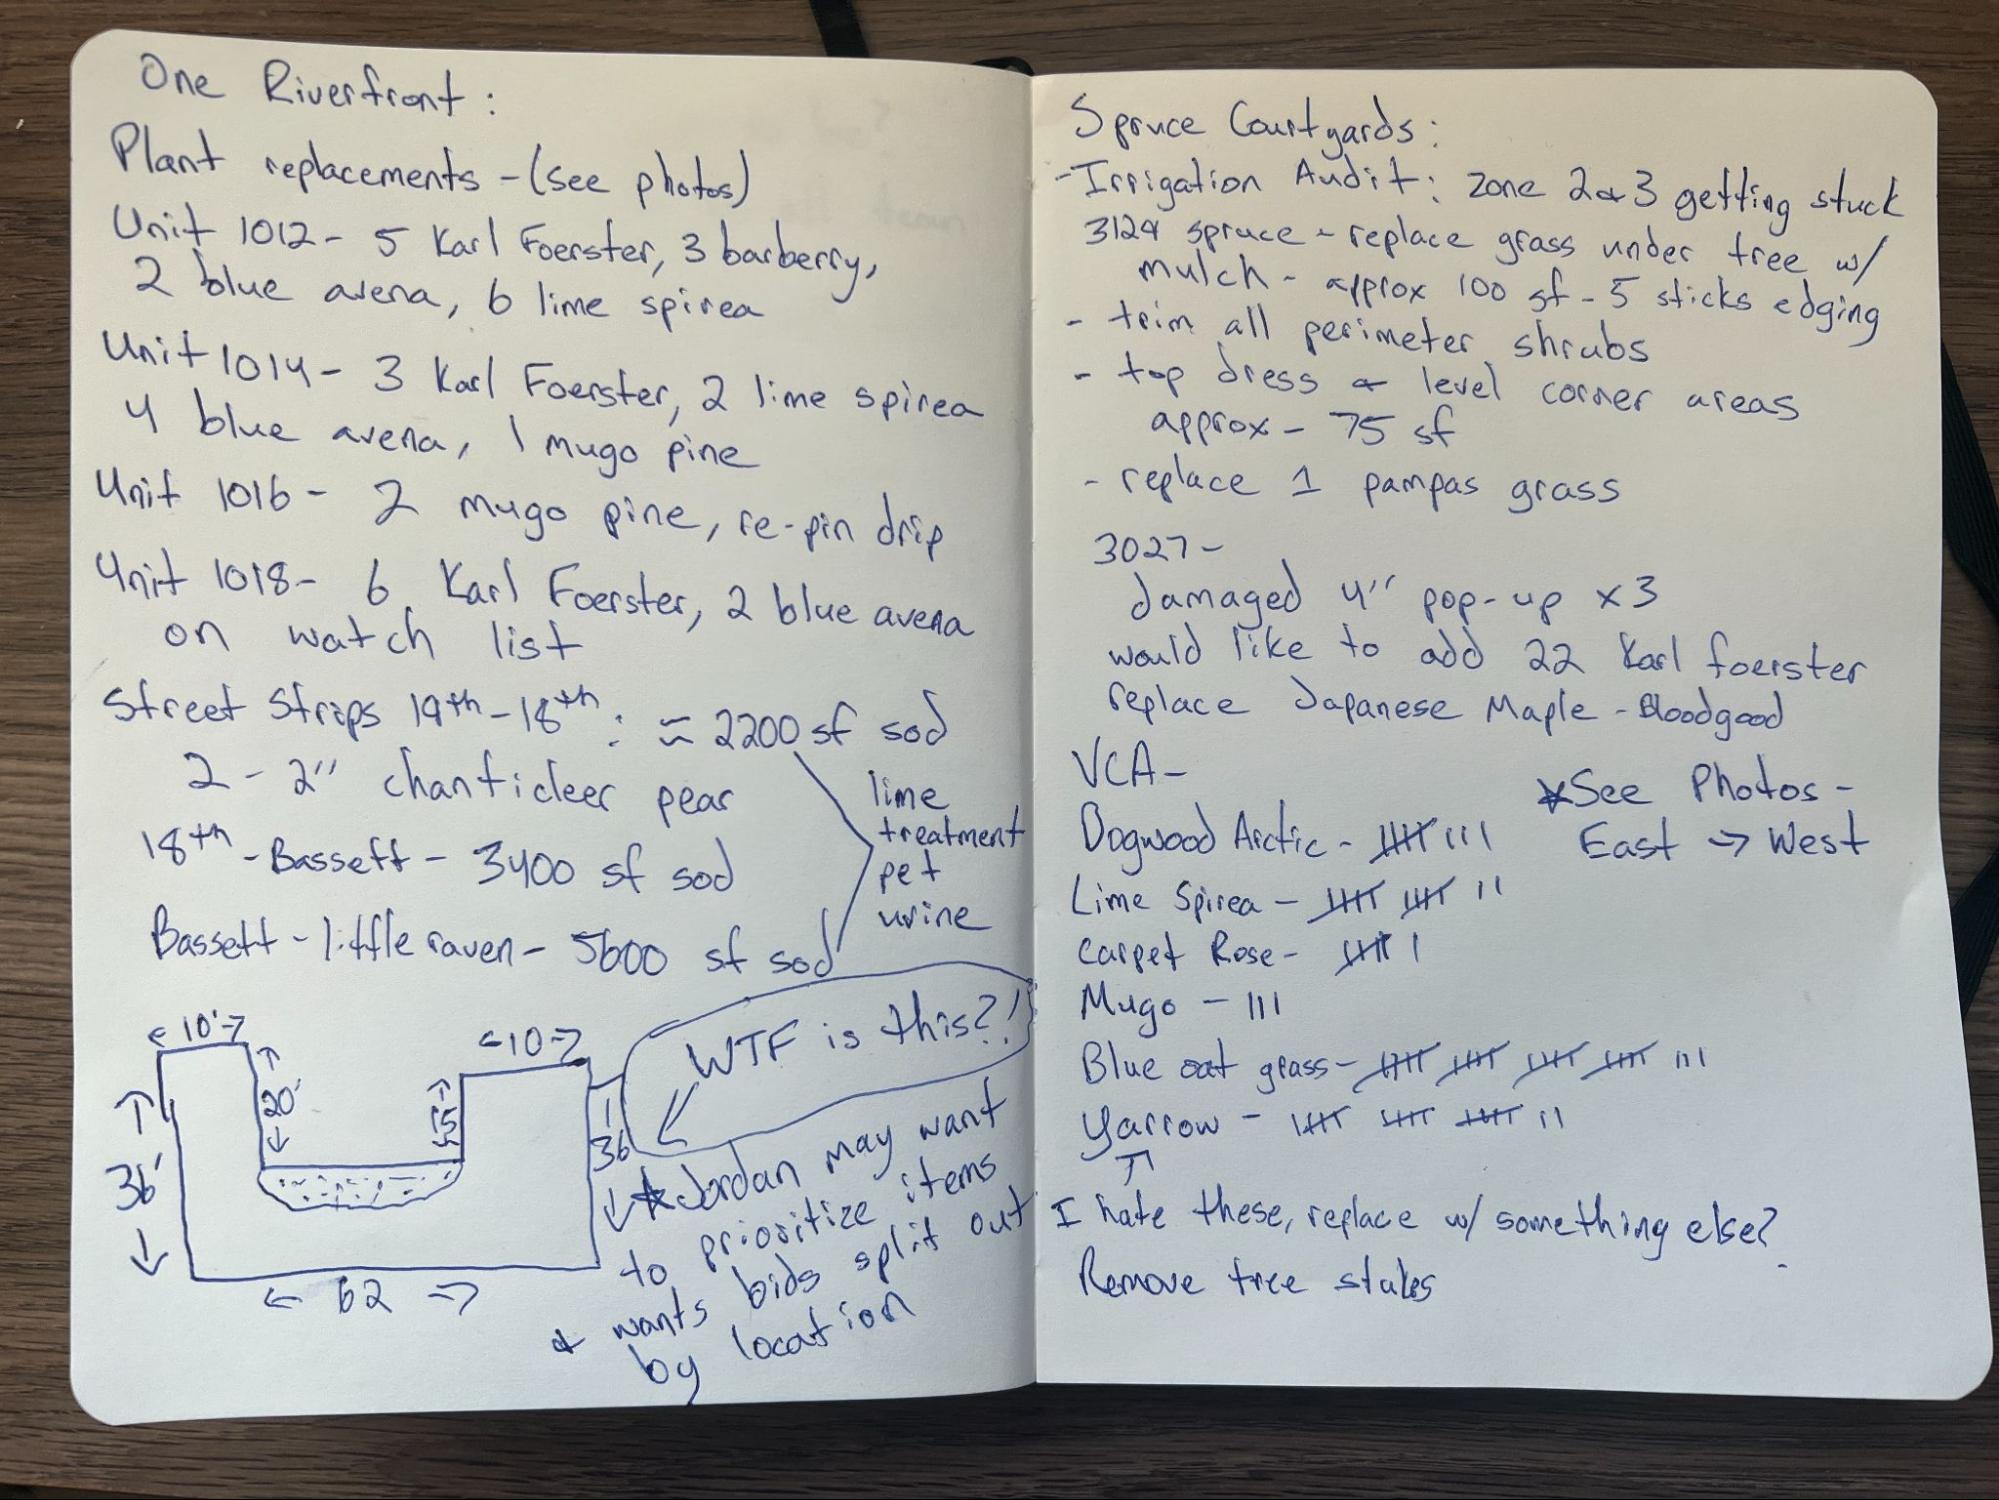 One Riverfront:
Plant replacements - (see photos)
Unit 1012 - 5 Karl Foerster, 3 barberry,
2 blue avena, 6 lime spirea
Unit 1014 - 3 Karl Foerster, 2 lime spirea
4 blue avena, 1 mugo pine
Unit 1016 - 2 mugo pine, re-pin drip
Unit 1018 - 6 Karl Foerster, 2 blue avena
on watch list
Street Strips 19th - 18th: ≈ 2200 sf sod
2 - 2" chanticleer pear
18th - Bassett - 3400 sf sod
Bassett - little raven - 5600 sf sod
lime
treatment
pet
urine
← 10' →
← 10 →
20'
15
36'
36
← 62 →
WTF is this?!
* Jordan may want
to prioritize items
& wants bids split out
by location
Spruce Courtyards:
- Irrigation Audit: zone 2 & 3 getting stuck
3124 spruce - replace grass under tree w/
mulch - approx 100 sf - 5 sticks edging
- trim all perimeter shrubs
- top dress & level corner areas
approx - 75 sf
- replace 1 pampas grass
3027 -
damaged 4" pop-up x3
would like to add 22 Karl foerster
replace Japanese Maple - Bloodgood
VCA -
* See Photos -
East → West
Dogwood Arctic - 𝍸 III
Lime Spirea - 𝍸 𝍸 II
Carpet Rose - 𝍸 I
Mugo - III
Blue oat grass - 𝍸 𝍸 𝍸 𝍸 III
Yarrow - 𝍸 𝍸 𝍸 II
↑
I hate these, replace w/ something else?
Remove tree stakes